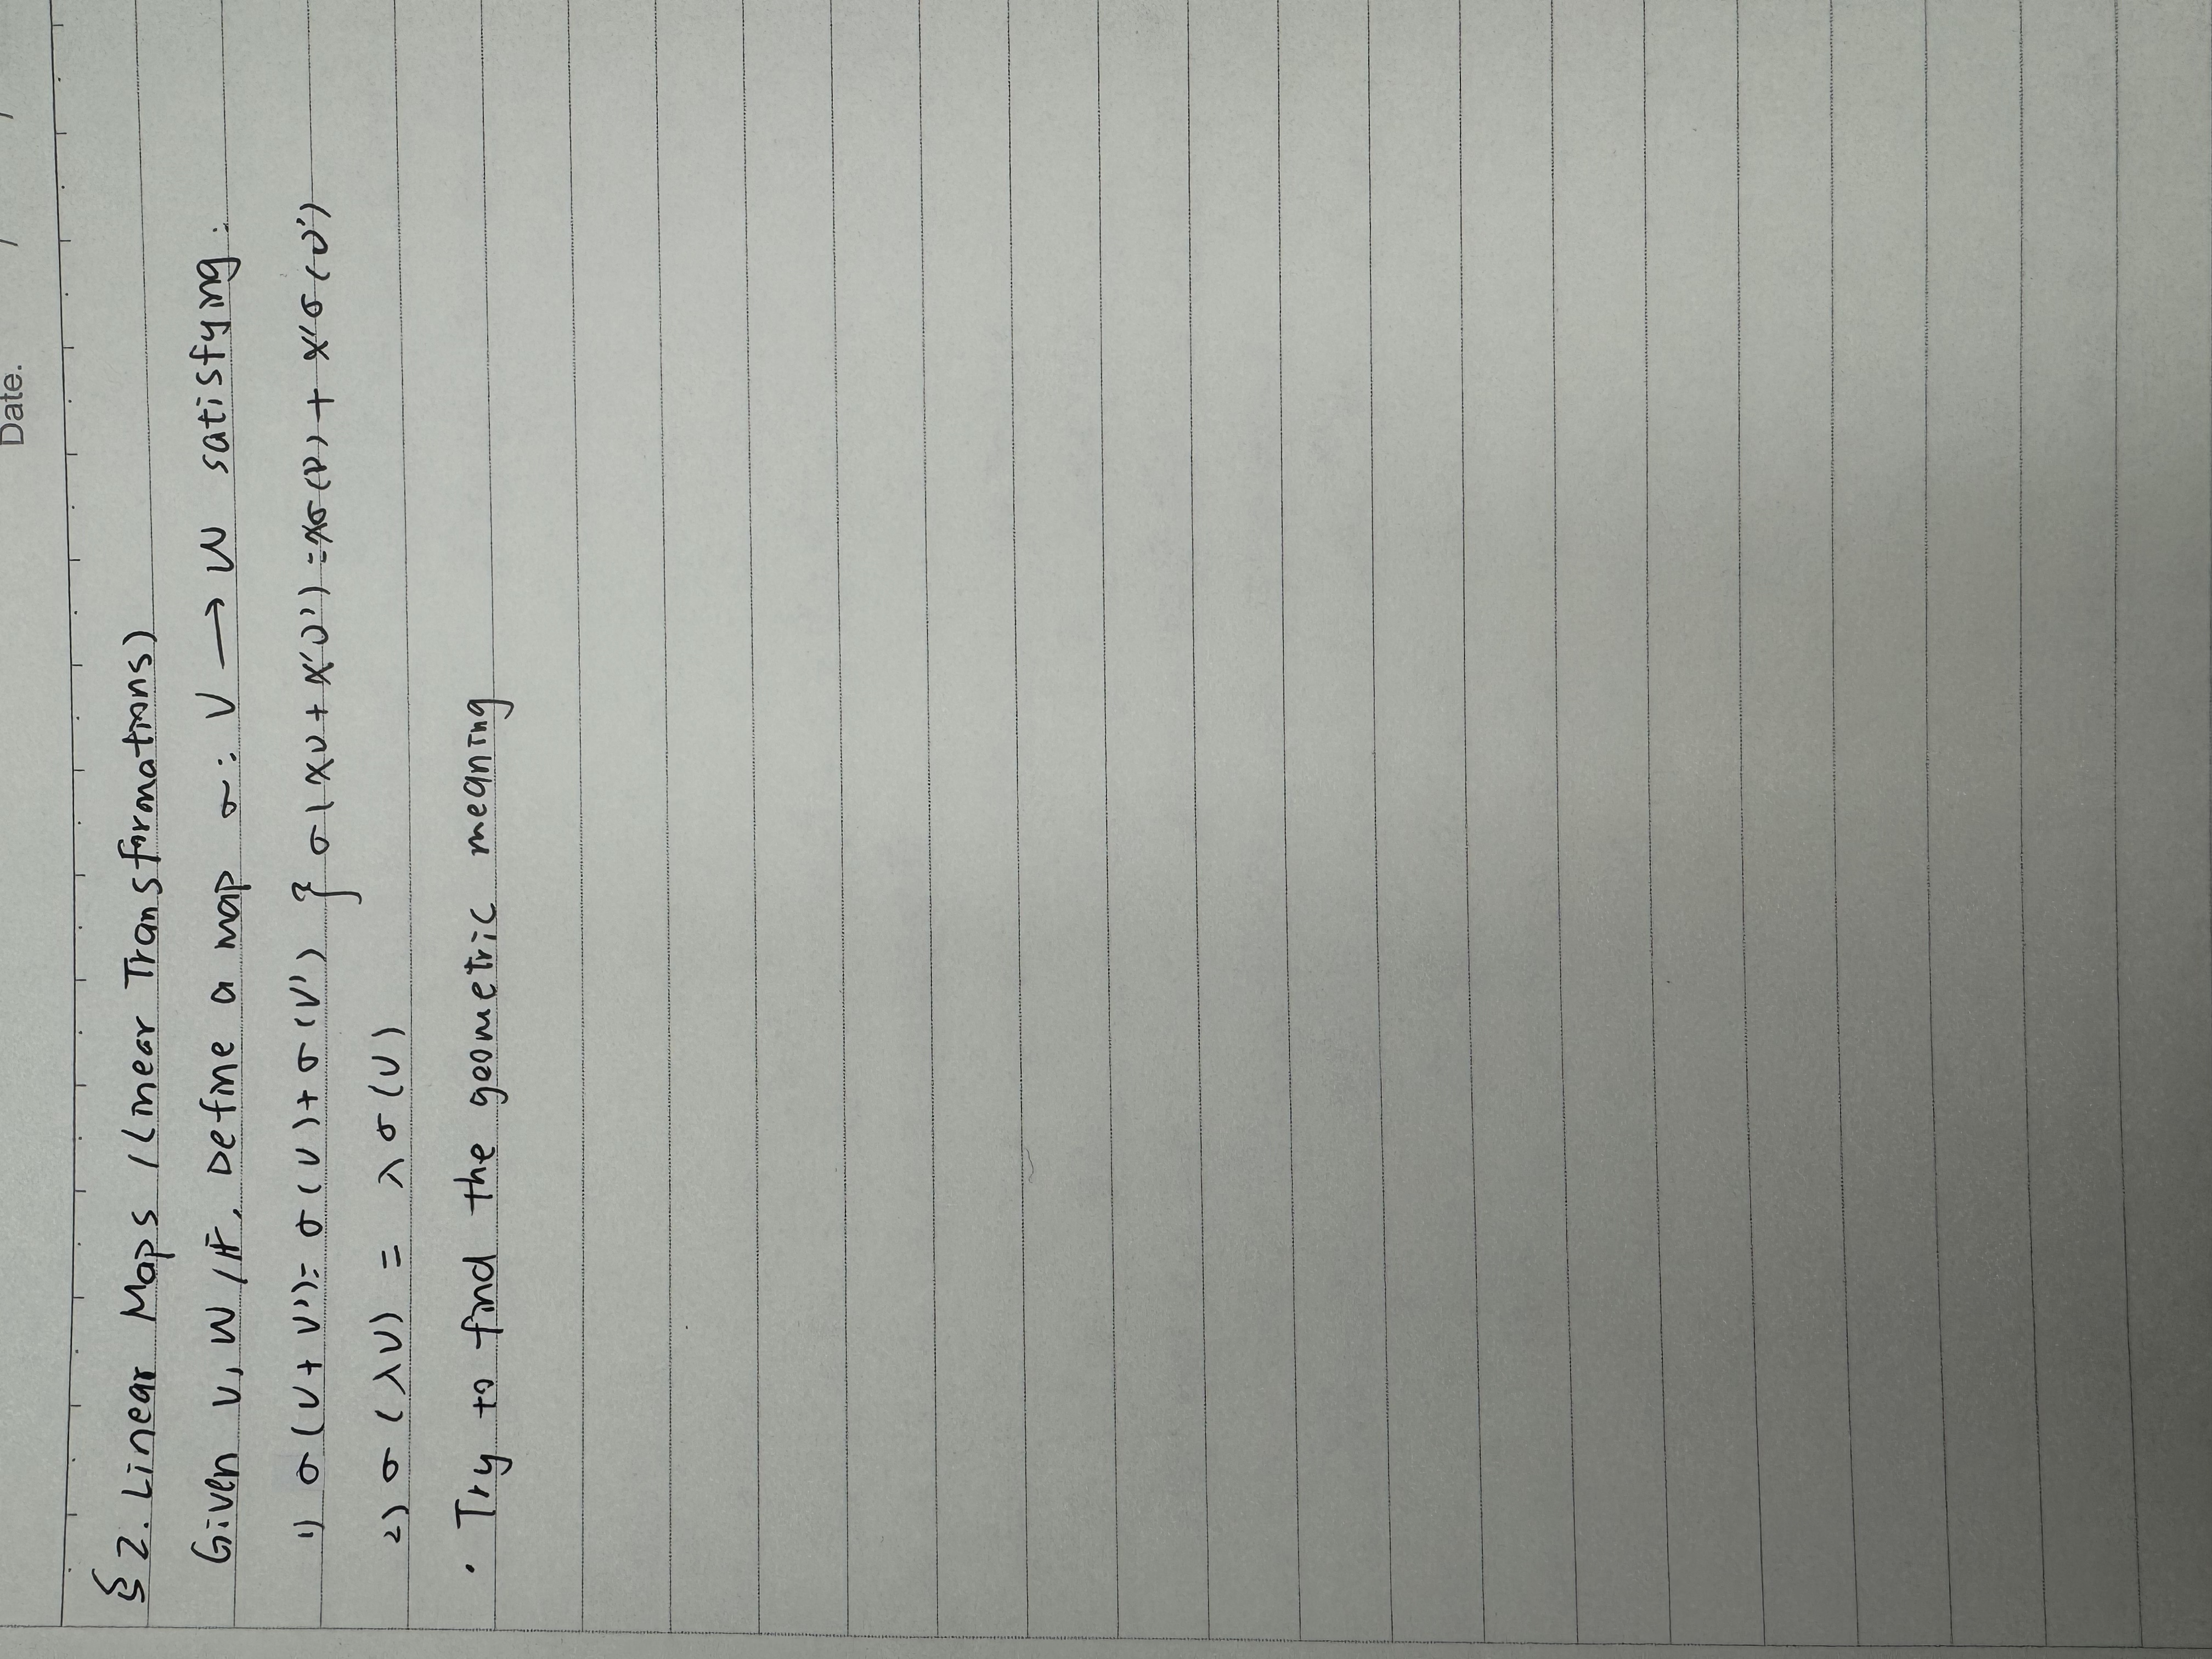 Date. / /
§2. Linear Maps (Linear Transformations)
Given V, W /F. Define a map σ: V → W satisfying:
1) σ(v+v')= σ(v)+σ(v') } σ(xv + x'v') = xσ(v) + x'σ(v')
2) σ(λv) = λσ(v)
· Try to find the geometric meaning